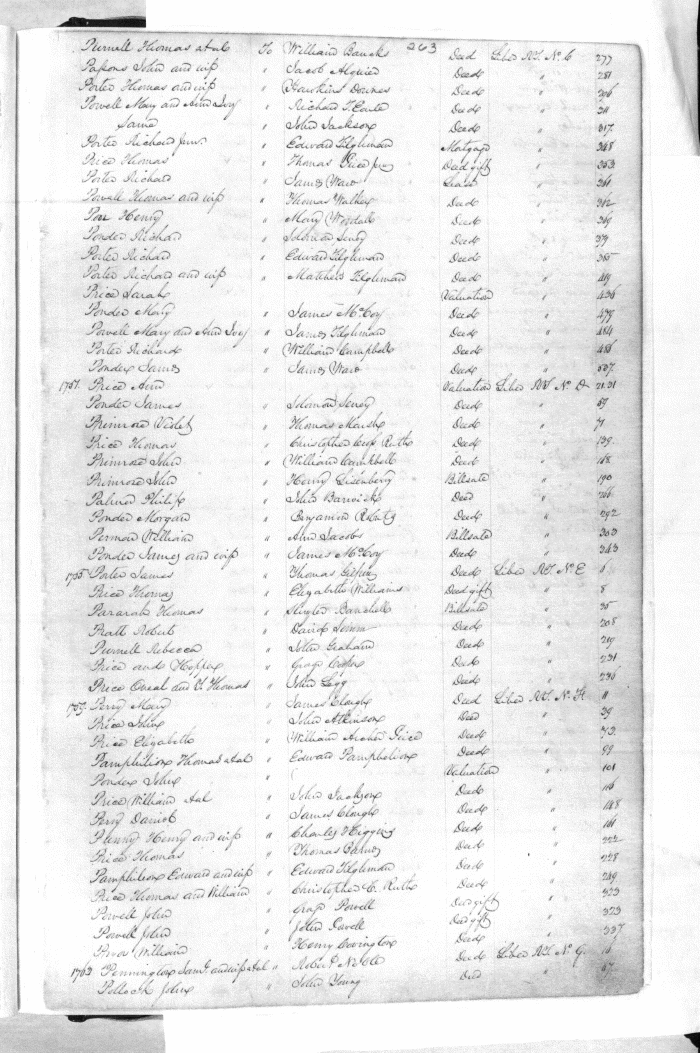 263
Purnell Thomas et ux To William Banks Deed Liber RT. No C 277
Parsons John and wife " Jacob Alquier Deed " 281
Porter Thomas and wife " Hawkins Downes Deed " 296
Powell Mary and Ann Ivy " Richard T. Earle Deed " 311
Same " John Jackson Deed " 317
Porter Richard Junr. " Edward Tilghman Mortgage " 348
Price Thomas " Thomas Price Jun Deed gift " 353
Porter Richard " James Ware Lease " 361
Powell Thomas and wife " Thomas Walker Deed " 362
Henry " Mary Deed " 369
Ponder Richard " Solomon Seney Deed " 379
Porter Richard " Edward Tilghman Deed " 385
Porter Richard and wife " Matthew Tilghman Deed " 419
Price Sarah Valuation " 436
Ponder Mary " James McCoy Deed " 479
Powell Mary and Ann Ivy " James Tilghman Deed " 484
Porter Richard " William Campbell Deed " 486
Ponder James " James Ware Deed " 507
1751. Price Ann " Valuation Liber RT No D 21.31
Ponder James " Solomon Seney Deed " 59
Primrose Violet " Thomas Marsh Deed " 71
Price Thomas " Christopher Cross Ruth Deed " 139
Primrose John " William Campbell Deed " 168
Primrose John " Henry Lisenbery Billsale " 190
Palmer Philip " John Barwick Deed " 266
Ponder Morgan " Benjamin Roberts Deed " 292
William " Ann Jacobs Billsale " 303
Ponder James and wife " James McCoy Deed " 343
1755 Porter James " Thomas Deed Liber RT. No E 1
Price Thomas " Elizabeth Williams Deed gift " 8
Thomas " Billsale " 35
Pratt Robert " David Deed " 208
Purnell Rebecca " John Graham Deed " 219
Price and " Deed " 231
Price and Thomas " John Legg Deed " 236
1759. Perry Mary " James Clough Deed Liber RT. No F 11
Price John " John Atkinson Deed " 39
Price Elizabeth " William Archer Price Deed " 73
Pamphilion Thomas et al " Edward Pamphilion Deed " 99
Ponder John " Valuation " 101
Price William et al " John Jackson Deed " 116
Perry Daniel " James Clough Deed " 148
Henry and wife " Charles Higgins Deed " 161
Price Thomas " Thomas Barnes Deed " 222
Pamphilion Edward and wife " Edward Tilghman Deed " 228
Price Thomas and William " Christopher C. Ruth Deed " 249
Powell John " Powell Deed gift " 323
Powell John " John Deed gift " 323
William " Henry Covington Deed " 337
1763 Pennington Saml. and wife et al " Robert Noble Deed Liber RT. No G. 16
Pollock John " John Young Deed " 67